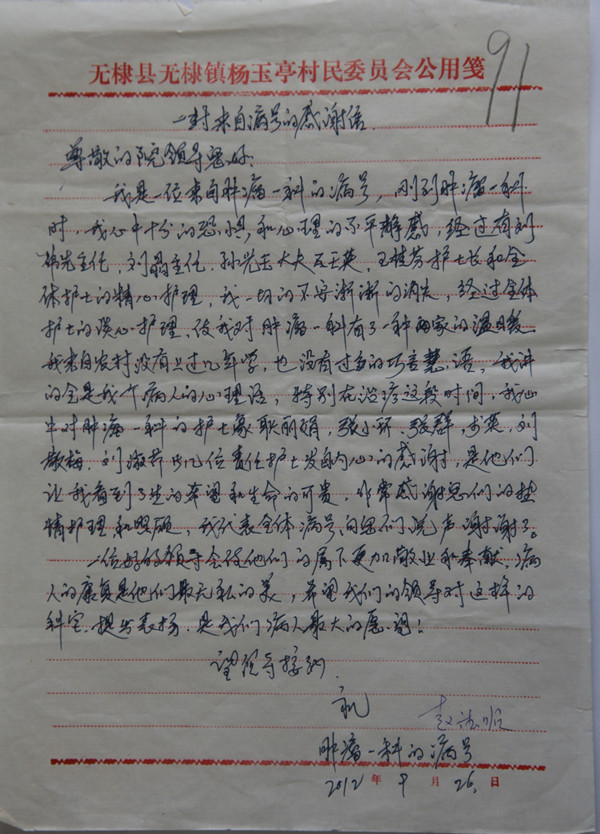 91
无棣县无棣镇杨玉亭村民委员会公用笺
一封来自病号的感谢信
尊敬的院领导您好:
我是一位来自肿瘤一科的病号,刚到肿瘤一科
时,我心中十分的恐惧,和心理的不平静感,经过有刘
主任,刘磊主任,孙光玉大夫 王英,王桂芬护士长和全
体护士的精心护理,我一切的不安渐渐的消失,经过全体
护士的谈心护理,使我对肿瘤一科有了一种回家的温暖。
我来自农村没有上过几年学,也没有过多的巧言慧语,我讲
的全是我个病人的心理话,特别在治疗这段时间,我心
中对肿瘤一科的护士象耿丽娟,张小环,张群,,刘
敬梅,刘淑芹此几位责任护士发自内心的感谢,是他们
让我看到了生的希望和生命的可贵,非常感谢您们的热
情护理和照顾,我代表全体病号,向您们说声谢谢了。
一位好的领导会使他们的属下更加敬业和奉献,病
人的康复是他们最无私的美,希望我们的领导对这样的
科室,提出表扬,是我们病人最大的愿望!
望领导接纳
祝 赵
肿瘤一科的病号
2012年9月26日